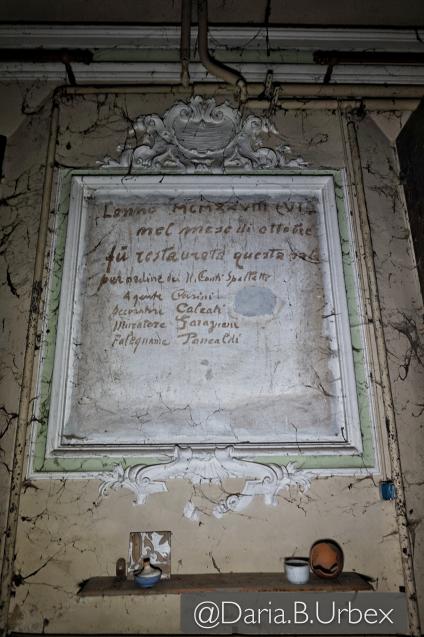 L'anno MCMXXVIII (VI
nel mese di ottobre
fu restaurata questa
per ordine dei N. Conti Spalletti
Agente Corsini
Decoratori Calzati
Muratore Saragnani
Falegname Pancaldi
@Daria.B.Urbex